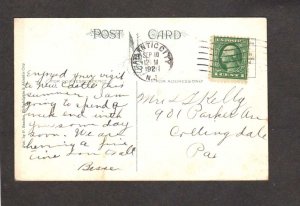 POST CARD
ATLANTIC CITY
SEP 10
12 M
N.J.
Enjoyed your visit
to New Castle this
summer. I am
going to spend a
week end with
you some day
soon. We are
having a fine
time. Love to all
Bessie
Mrs L Kelly
901 Parker Ave
Collingdale
Pa